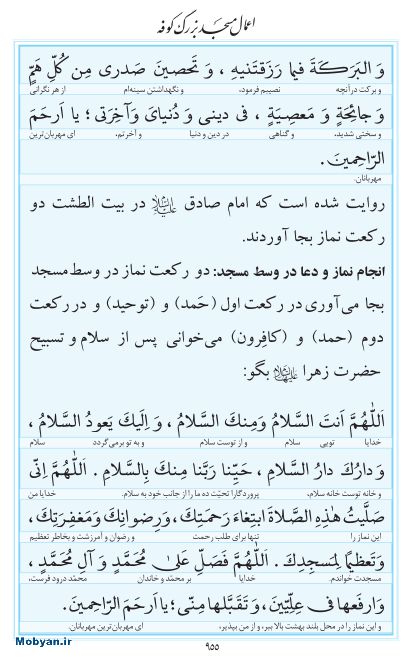 اعمال مسجد بزرگ کوفه
وَ البَرَكَةَ فيما رَزَقتَنيهِ ، وَ تَحصينَ صَدري مِن كُلِّ هَمٍّ
و برکت در آنچه نصیبم فرمودی، و نگهداشتن سینه‌ام از هر نگرانی
وَ جائِحَةٍ وَ مَعصِيَةٍ ، في ديني وَ دُنيايَ وَ آخِرَتي ؛ يا اَرحَمَ
و سختی شدید، و گناهی در دین و دنیا و آخرتم. ای مهربان‌ترین
الرّاحِمينَ .
مهربانان.
روایت شده است که امام صادق علیه‌السلام در بیت الطشت دو
رکعت نماز بجا آوردند.
انجام نماز و دعا در وسط مسجد: دو رکعت نماز در وسط مسجد
بجا می‌آوری در رکعت اول (حَمد) و (توحید) و در رکعت
دوم (حمد) و (کافرون) می‌خوانی پس از سلام و تسبیح
حضرت زهرا علیهاالسلام بگو:
اَللّٰهُمَّ اَنتَ السَّلامُ وَمِنكَ السَّلامُ ، وَ اِلَيكَ يَعودُ السَّلامُ ،
خدایا تویی سلام و از توست سلام و به تو برمی‌گردد سلام
وَ دارُكَ دارُ السَّلامِ ، حَيِّنا رَبَّنا مِنكَ بِالسَّلامِ . اَللّٰهُمَّ اِنّي
و خانه توست خانه سلام، پروردگارا تحیّت ده ما را از جانب خود به سلام. خدایا من
صَلَّيتُ هٰذِهِ الصَّلاةَ ابتِغاءَ رَحمَتِكَ، وَرِضوانِكَ وَمَغفِرَتِكَ،
این نماز را تنها برای طلب رحمت و رضوان و آمرزشت و بخاطر تعظیم
وَتَعظيماً لِمَسجِدِكَ . اَللّٰهُمَّ فَصَلِّ عَلىٰ مُحَمَّدٍ وَ آلِ مُحَمَّدٍ ،
مسجدت خواندم. خدایا بر محمّد و خاندان محمّد درود فرست،
وَارفَعها في عِلِّيّينَ، وَ تَقَبَّلها مِنّي؛ يا اَرحَمَ الرّاحِمينَ.
و این نماز را در محل بلند بهشت بالا ببر، و از من بپذیر، ای مهربان‌ترین مهربانان.
۹۵۵
Mobyan.ir